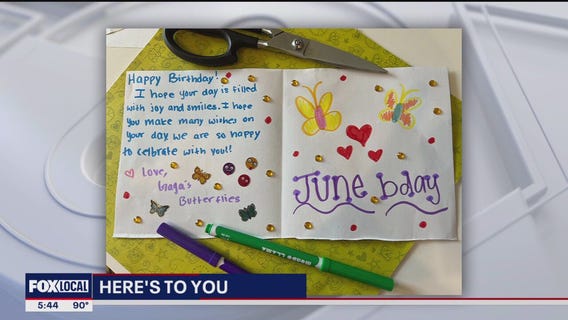 Happy Birthday!
I hope your day is filled
with joy and smiles. I hope
You make many wishes on
Your day. we are so happy
to celbrate with you!!
Love,
Gaga's
Butterflies
June bday
FOX LOCAL
HERE'S TO YOU
5:44 90°